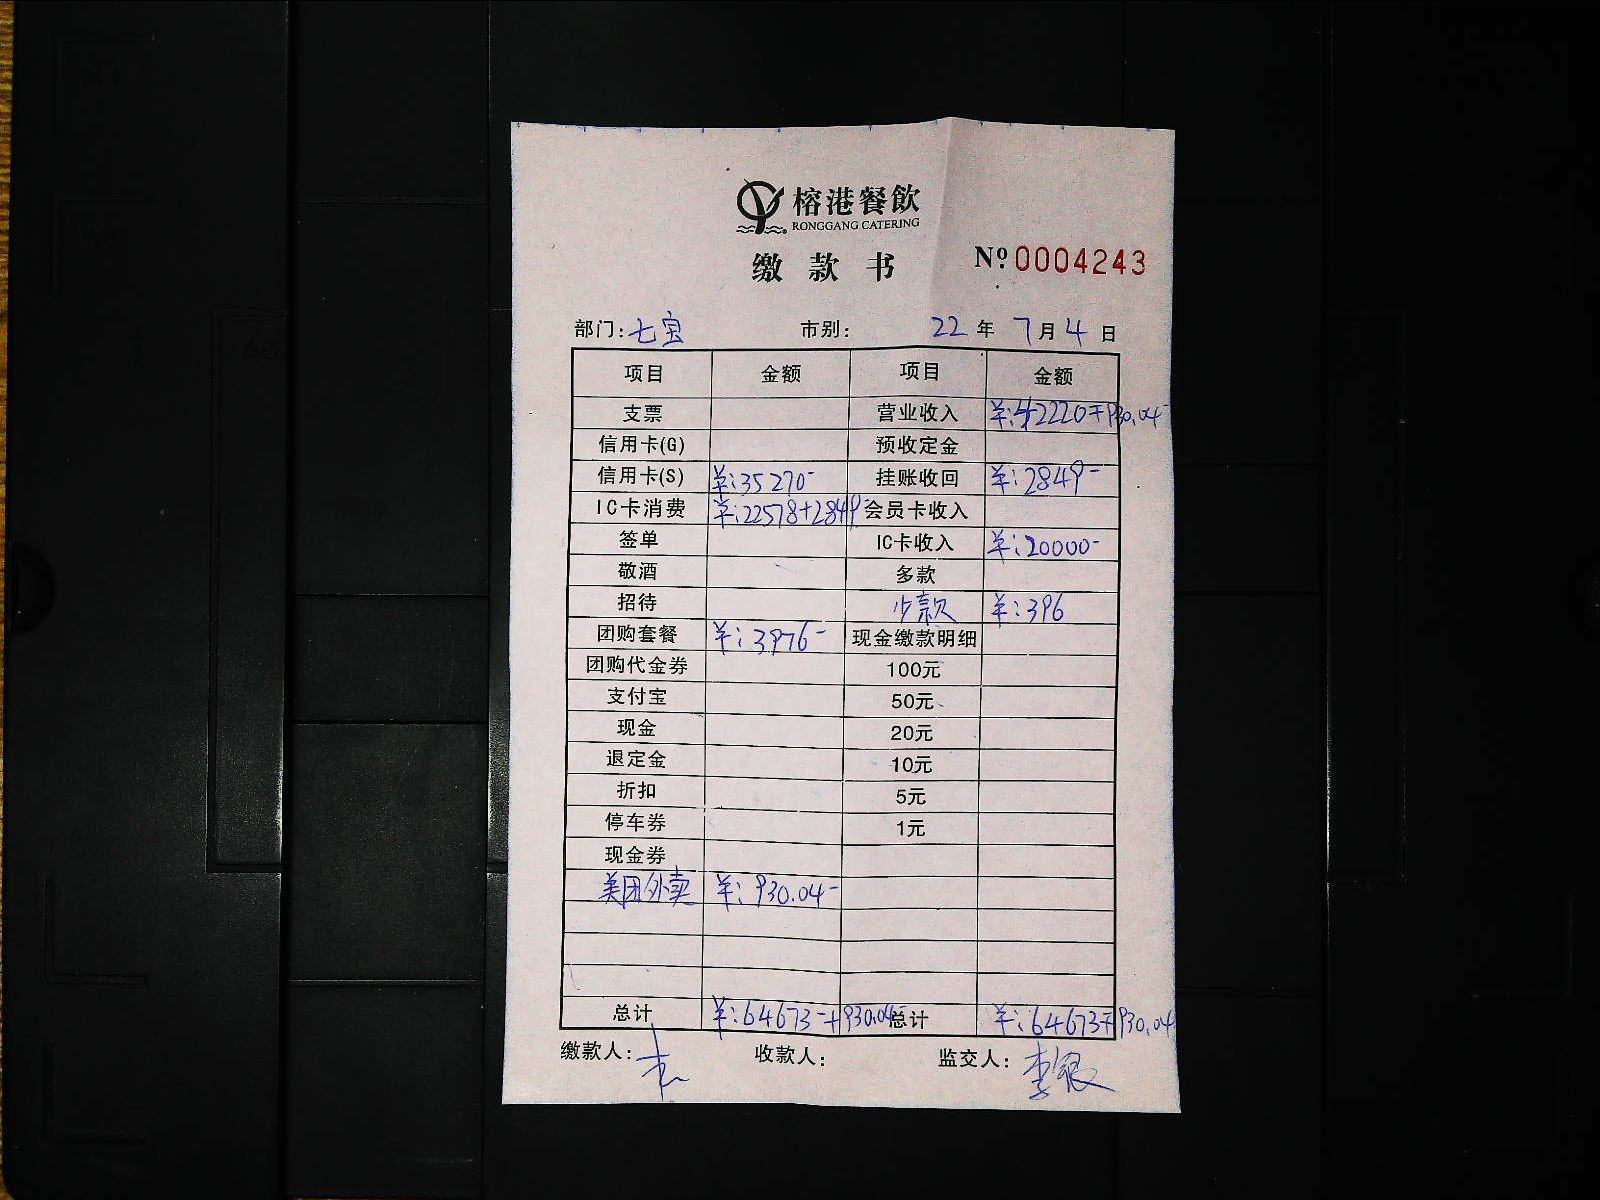 榕港餐飲
RONGGANG CATERING
缴款书 Nº 0004243
部门:七宝 市别: 22年 7月4日
项目 金额 项目 金额
支票 营业收入 ¥:42220-+930.04-
信用卡(G) 预收定金
信用卡(S) ¥:35270- 挂账收回 ¥:2849-
IC卡消费 ¥:22578+2849- 会员卡收入
签单 IC卡收入 ¥:20000-
敬酒 多款
招待 少款 ¥:396
团购套餐 ¥:3976- 现金缴款明细
团购代金券 100元
支付宝 50元
现金 20元
退定金 10元
折扣 5元
停车券 1元
现金券
美团外卖 ¥:930.04-
总计 ¥:64673-+930.04- 总计 ¥:64673-+930.04
缴款人: 收款人: 监交人:李银